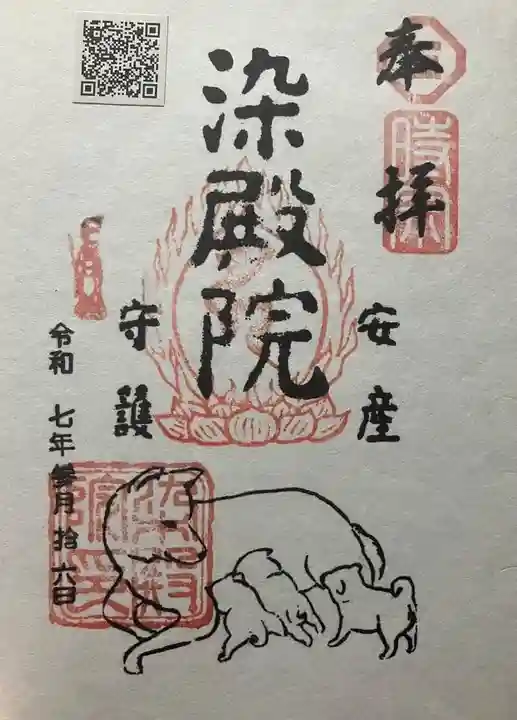 奉拝
時宗
安産
染殿院
守護
令和 七年 弐月 拾六日